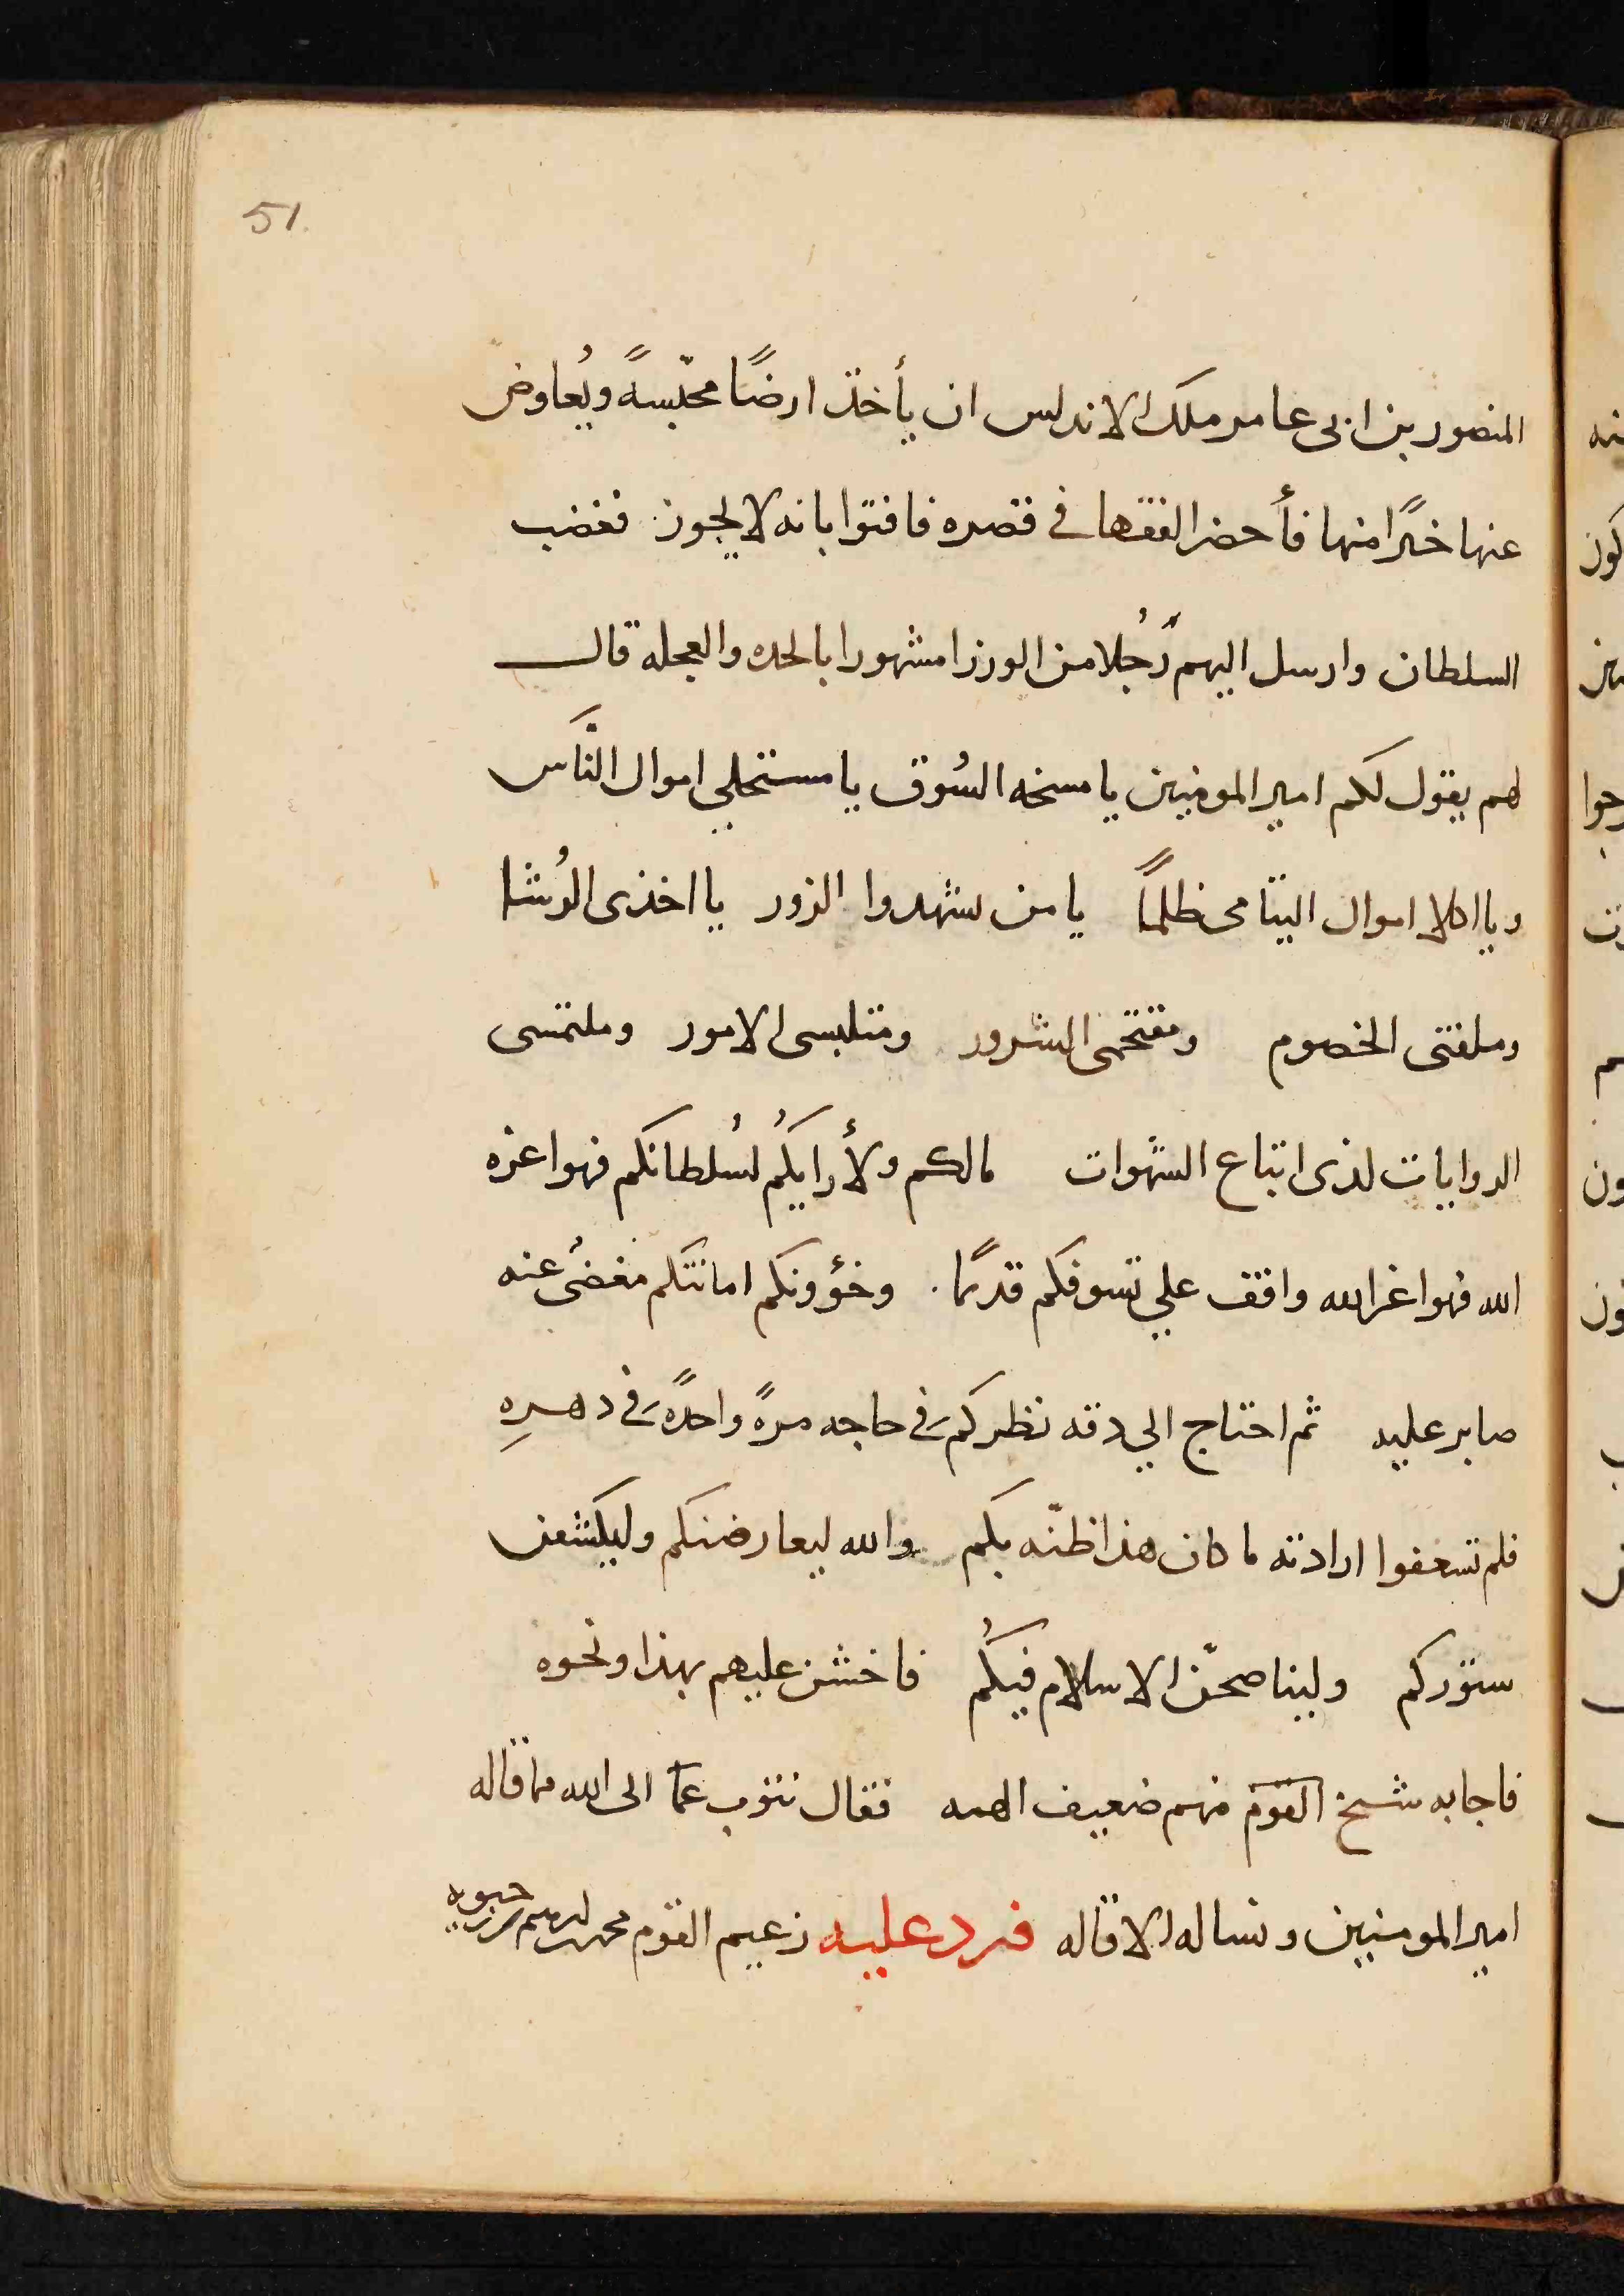 51
المنصور بن ابي عامر ملك الاندلس ان يأخذ ارضًا محبّسةً ويُعاوض
عنها خيرًا منها فأحضر الفقها في قصره فافتوا بانه لا يجوز فغضب
السلطان وارسل اليهم رُجلا من الوزرا مشهورا بالحده والعجله قال
لهم يقول لكم امير المومنين يا مسخه السُوق يا مستحلي اموال النّاس
ويا اكلا اموال اليتامى ظلمًا يا من يشهدوا الزور يا اخذى الرُشا
وملقنى الخصوم ومقتحمى الشرور ومتلبسى الامور وملتمسى
الروايات لذى اتباع الشهوات مالكم ولأرايكُم لسُلطانكم فهوا عزه
الله فهوا عز الله واقف علي تسوفكم قديمًا وخؤونكم امانتكم مغضىُ عنه
صابر عليه ثم احتاج الي دقه نظركم في حاجه مرةً واحدةً في دهرِهِ
فلم تسعفوا ارادته ما كان هذا ظنّه بكم والله ليعارضنكم وليكشفن
ستوركم وليناصحنّ الاسلام فيكُم فاخشن عليهم بهذا ونحوه
فاجابه شيخ القوم منهم ضعيف المنه فقال نتوب عما الى الله مما قاله
امير المومنين ونساله الاقاله فرد عليه زعيم القوم محمد بن ابرهيم بن حيويه